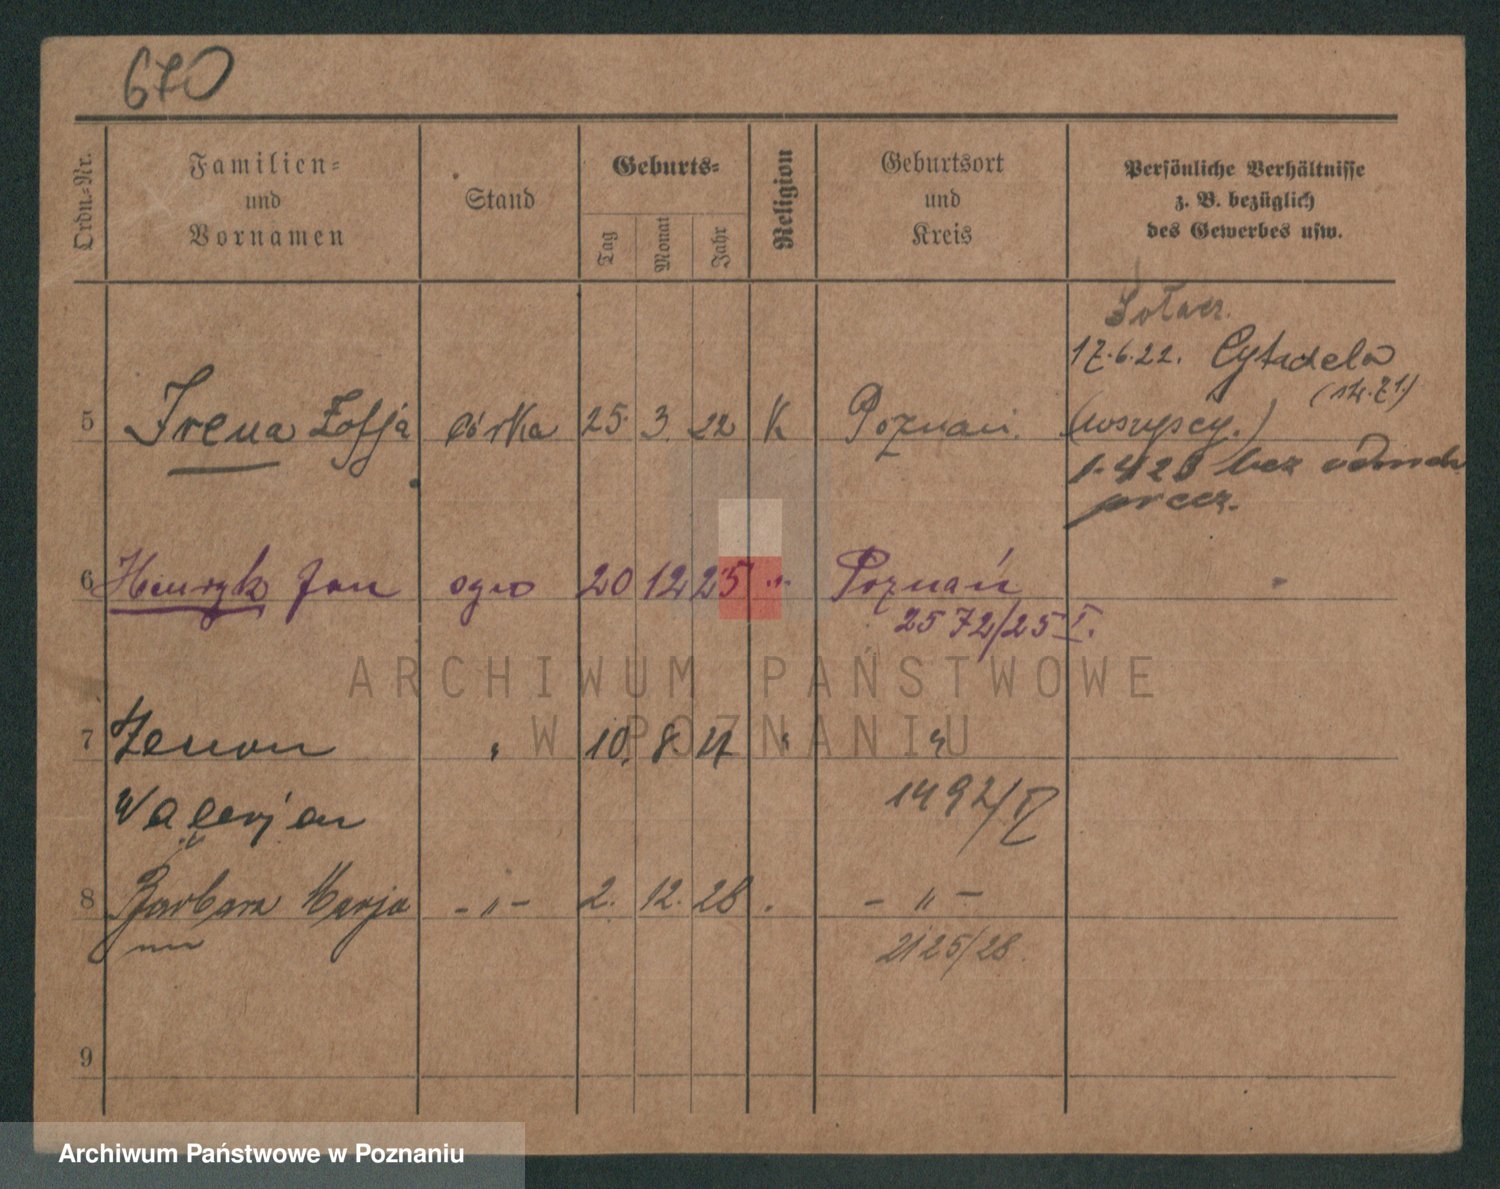 670
Ordn.=Nr.
Familien=
und
Vornamen
Stand
Geburts=
Tag
Monat
Jahr
Religion
Geburtsort
und
Kreis
Persönliche Verhältnisse
z. B. bezüglich
des Gewerbes usw.
Sołacz.
17.6.22. Cytadela
5 Irena Zofja córka 25. 3. 22 K Poznań. (wszyscy.)
1.4 23 bez
6 Henryk Jan syn 20 12 25 " Poznań "
2572/25 I.
7 Zenon " 10. 8. 27 " "
Walerjan 1492/
8 Barbara Marja - " - 2. 12. 28 . - " -
2125/28.
9
ARCHIWUM PAŃSTWOWE
W POZNANIU
Archiwum Państwowe w Poznaniu